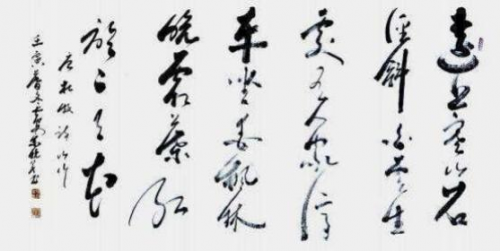 遠上寒山石
徑斜白雲生
處有人家停
車坐愛楓林
晚霜葉紅
於二月花
唐杜牧詩山行
壬寅春